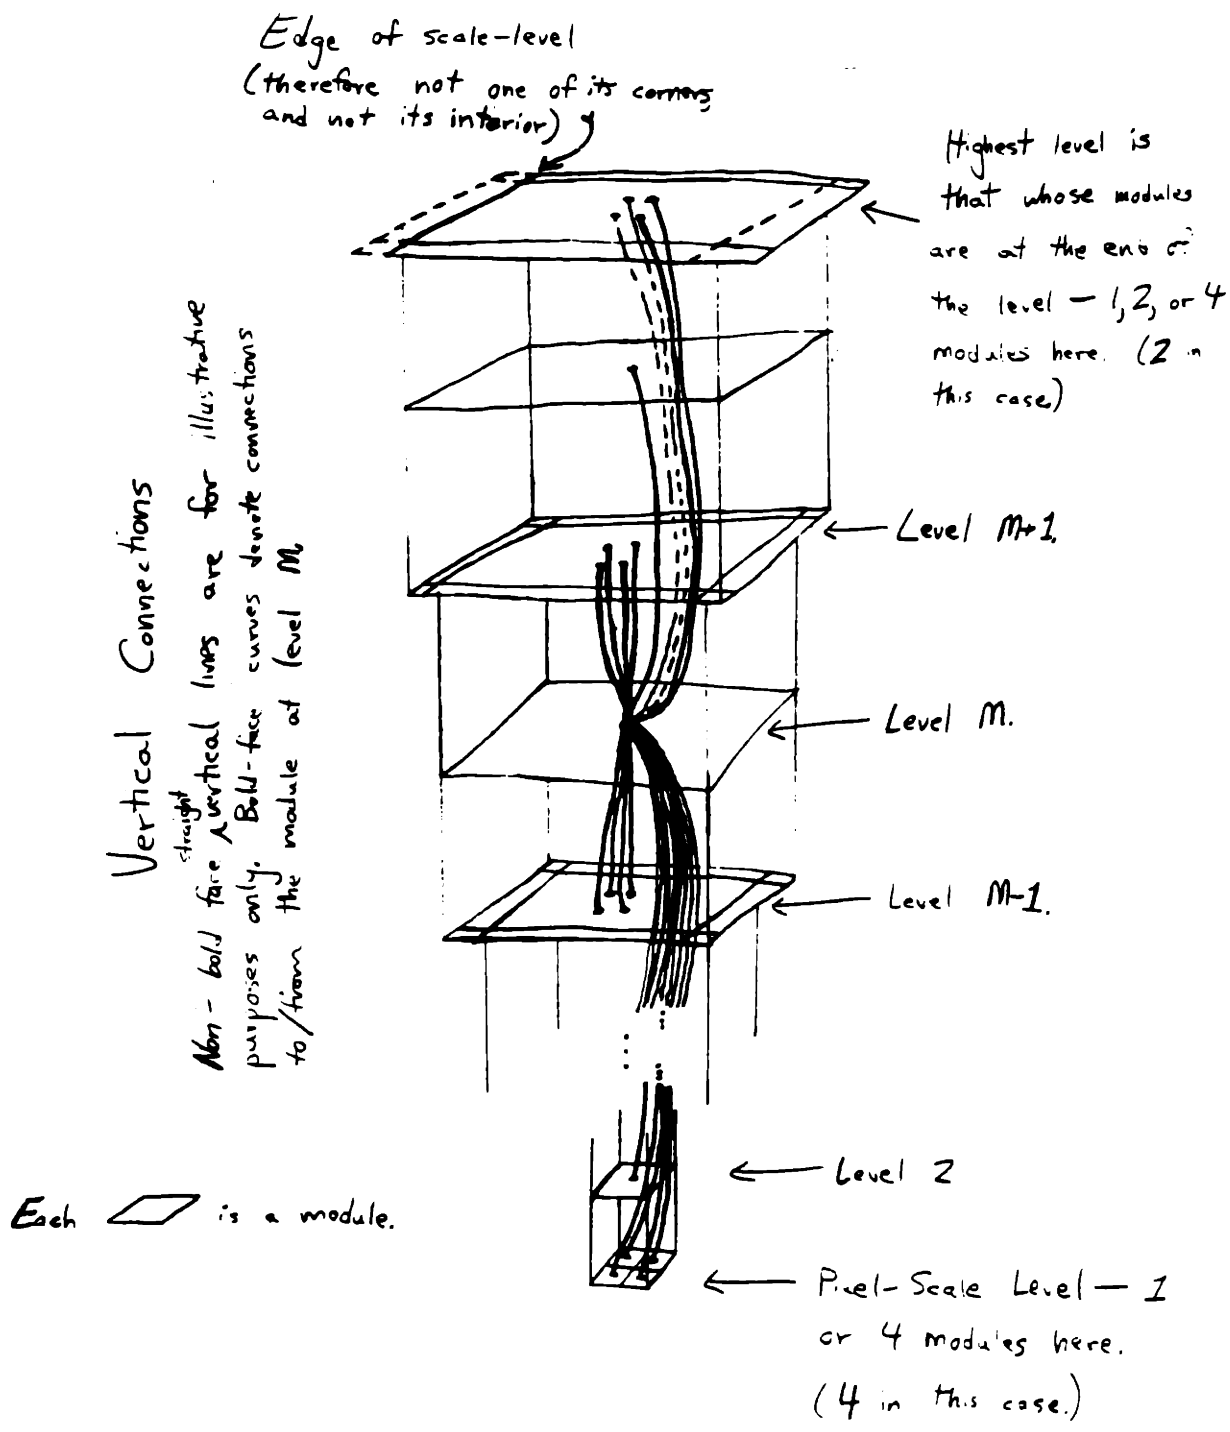 Edge of scale-level
(therefore not one of its corners,
and not its interior)
Highest level is
that whose modules
are at the end of
the level — 1, 2, or 4
modules here. (2 in
this case)
Vertical Connections
Non-bold face straight vertical lines are for illustrative
purposes only. Bold-face curves denote connections
to/from the module at level M.
Level M+1.
Level M.
Level M-1.
Level 2
Each is a module.
Pixel-Scale Level — 1
or 4 modules here.
(4 in this case.)